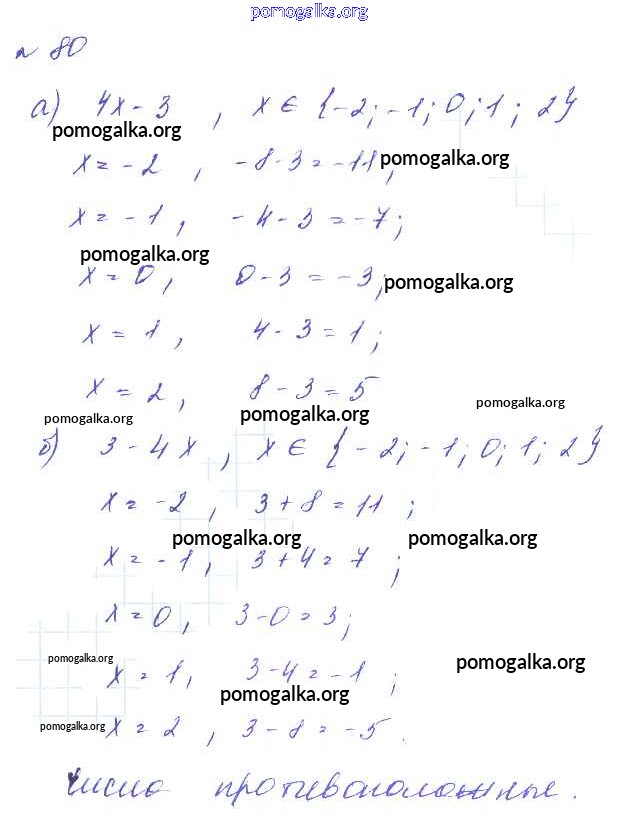 pomogalka.org
№ 80
а) 4x - 3 , x ∈ {-2; -1; 0; 1; 2}
pomogalka.org
x = -2 , -8-3 = -11;
pomogalka.org
x = -1 , -4-3 = -7;
pomogalka.org
x = 0, 0-3 = -3;
pomogalka.org
x = 1 , 4-3 = 1;
x = 2 , 8-3 = 5
pomogalka.org
pomogalka.org
pomogalka.org
б) 3-4x , x ∈ {-2; -1; 0; 1; 2}
x = -2 , 3+8 = 11 ;
pomogalka.org
pomogalka.org
x = -1 , 3+4 = 7 ;
x = 0, 3-0 = 3;
pomogalka.org
pomogalka.org
x = 1, 3-4 = -1 ;
pomogalka.org
pomogalka.org
x = 2 , 3-8 = -5.
Числа противоположные.